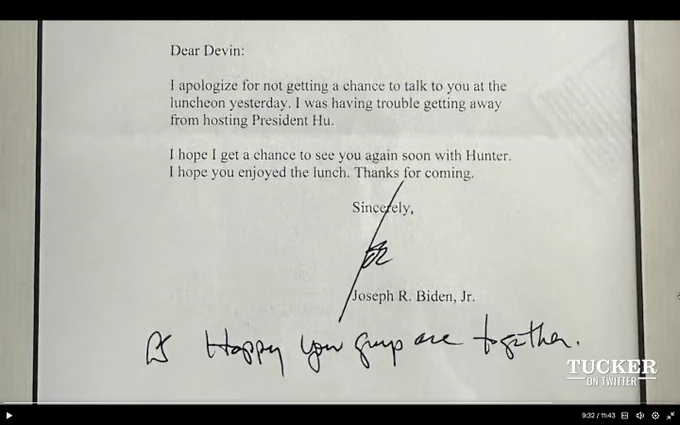 Dear Devin:
I apologize for not getting a chance to talk to you at the
luncheon yesterday. I was having trouble getting away
from hosting President Hu.
I hope I get a chance to see you again soon with Hunter.
I hope you enjoyed the lunch. Thanks for coming.
Sincerely,
Joseph R. Biden, Jr.
PS Happy you guys are together.
TUCKER
ON TWITTER
9:32 / 11:43